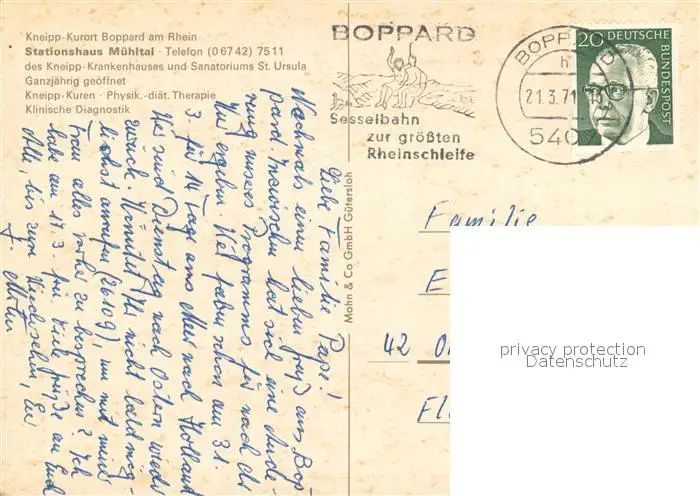 Kneipp-Kurort Boppard am Rhein
Stationshaus Mühltal · Telefon (06742) 7511
des Kneipp-Krankenhauses und Sanatoriums St. Ursula
Ganzjährig geöffnet
Kneipp-Kuren · Physik.-diät. Therapie
Klinische Diagnostik
BOPPARD
Sesselbahn
zur größten
Rheinschleife
BOPPARD
h
21.3.71
540
20 DEUTSCHE
BUNDESPOST
Mohn & Co GmbH Gütersloh
Liebe Familie Papi!
Nochmals einen lieben Gruß aus Bop-
pard. Inzwischen hat sich eine Ände-
rung unseres Programms für nach der
Kur ergeben. Wir fahren schon am 31.
3. für 14 Tage ans Meer nach Holland
sind Dienstag nach Ostern wieder
zurück. Könntet Ihr nicht bald mög-
lichst anrufen (26109), um mit meiner
Frau alles vorher zu besprechen? Ich
habe am 17.3. frei. Viele Grüße an Euch
Alle, bis zum Wiedersehen, Euer
Familie
E
42 O
Fl
privacy protection
Datenschutz